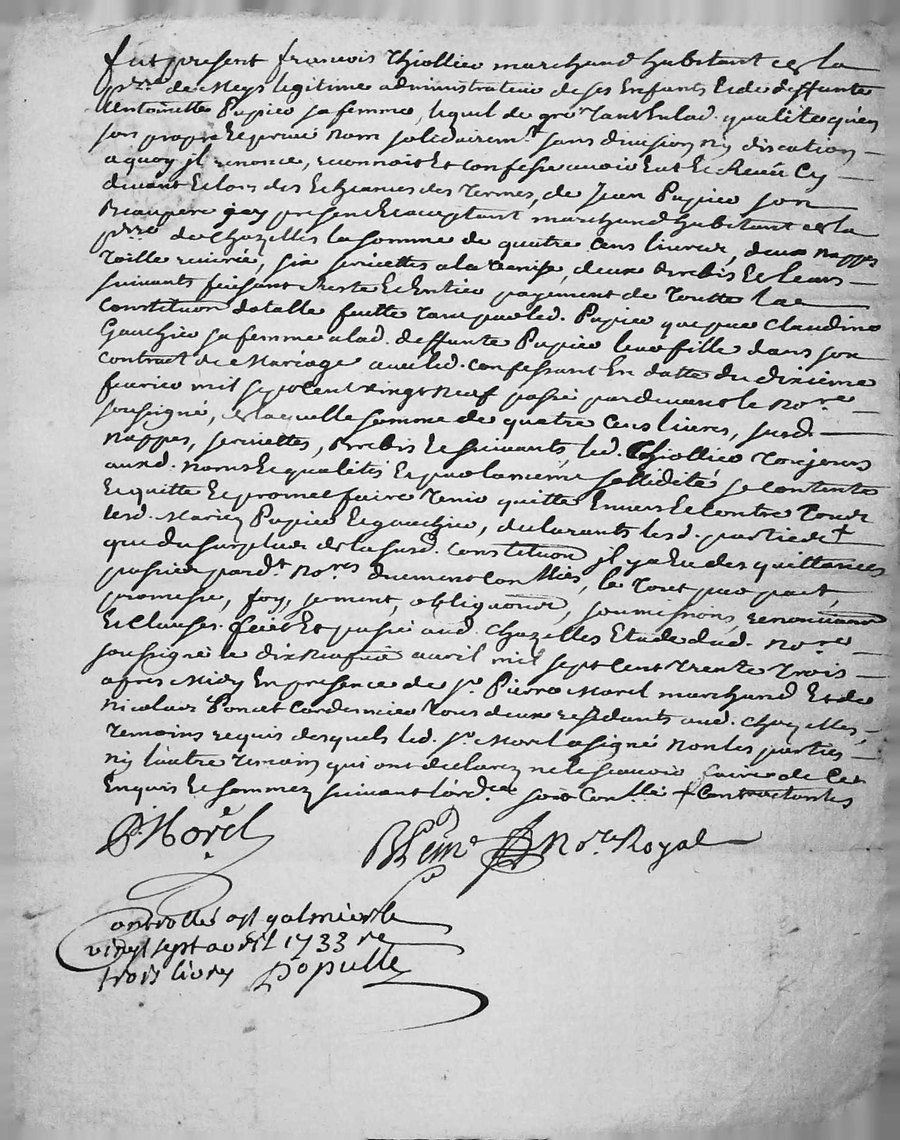 fut present francois Thiollier marchand habitant en la
p.rre de Meys legitime administrateur de ses Enfants Et de deffunte
Antoinette Pupier sa femme, lequel de gré tant En lad. qualité qu'en
son propre Et privé nom solidairem.t sans division ny discution
a quoy il renonce, reconnoit Et confesse avoir Eut Et Receu Cy
devant Et lors des Echeances des termes, de Jean Pupier son
Beaupere icy present Et acceptant marchand habitant en la
p.rre de Chazelles la somme de quatre Cens livres, deux nappes
toille cuivré, six serviettes a la Venise, deux Brebis Et leurs
suivants faisant reste Et Entier payement de toutte la
Constitution dotalle faitte tant par led. Pupier que par Claudine
Gauchier sa femme a lad. deffunte Pupier leur fille dans son
Contract de Mariage avec led. confessant En datte du dixieme
fevrier mil sept Cent vingt neuf passé pardevant le No.re
soussigné, de laquelle somme de quatre Cens livres, susd.
nappes, serviettes, Brebis Et suivants, led. Thiollier toujours
auxd. noms Et qualités Et par la meme sollidité se contente
Et quitte Et promet faire tenir quitte Envers Et contre tous
lesd. Mariez Pupier Et gauchier, declarants lesd. parties +
que du surplus de la susd. Constitution il y a Eu des quittances
passées pard.t No.res duement Conllées, le tout par pact,
promesse, foy, serment, obligations, soumissions, renonciations
Et Clauses. fait Et passé aud. Chazelles Etude dud. No.re
soussigné le dix neufvie avril mil sept Cent trente trois
apres Midy En presence de s.r Pierre Morel marchand Et de
Nicolas Poncet Cordonnier tous deux residants aud. Chazelles,
temoins requis desquels led. s.r Morel a signé non les parties
ny l'autre temoin qui ont declarez ne le scavoir faire de Ce
Enquis Et sommez suivant l'ord.ce sera Conllé + Contractantes
P. Morel
No.re Royal
Controllé a st galmier le
vingt sept avril 1733 re
trois livres Populle